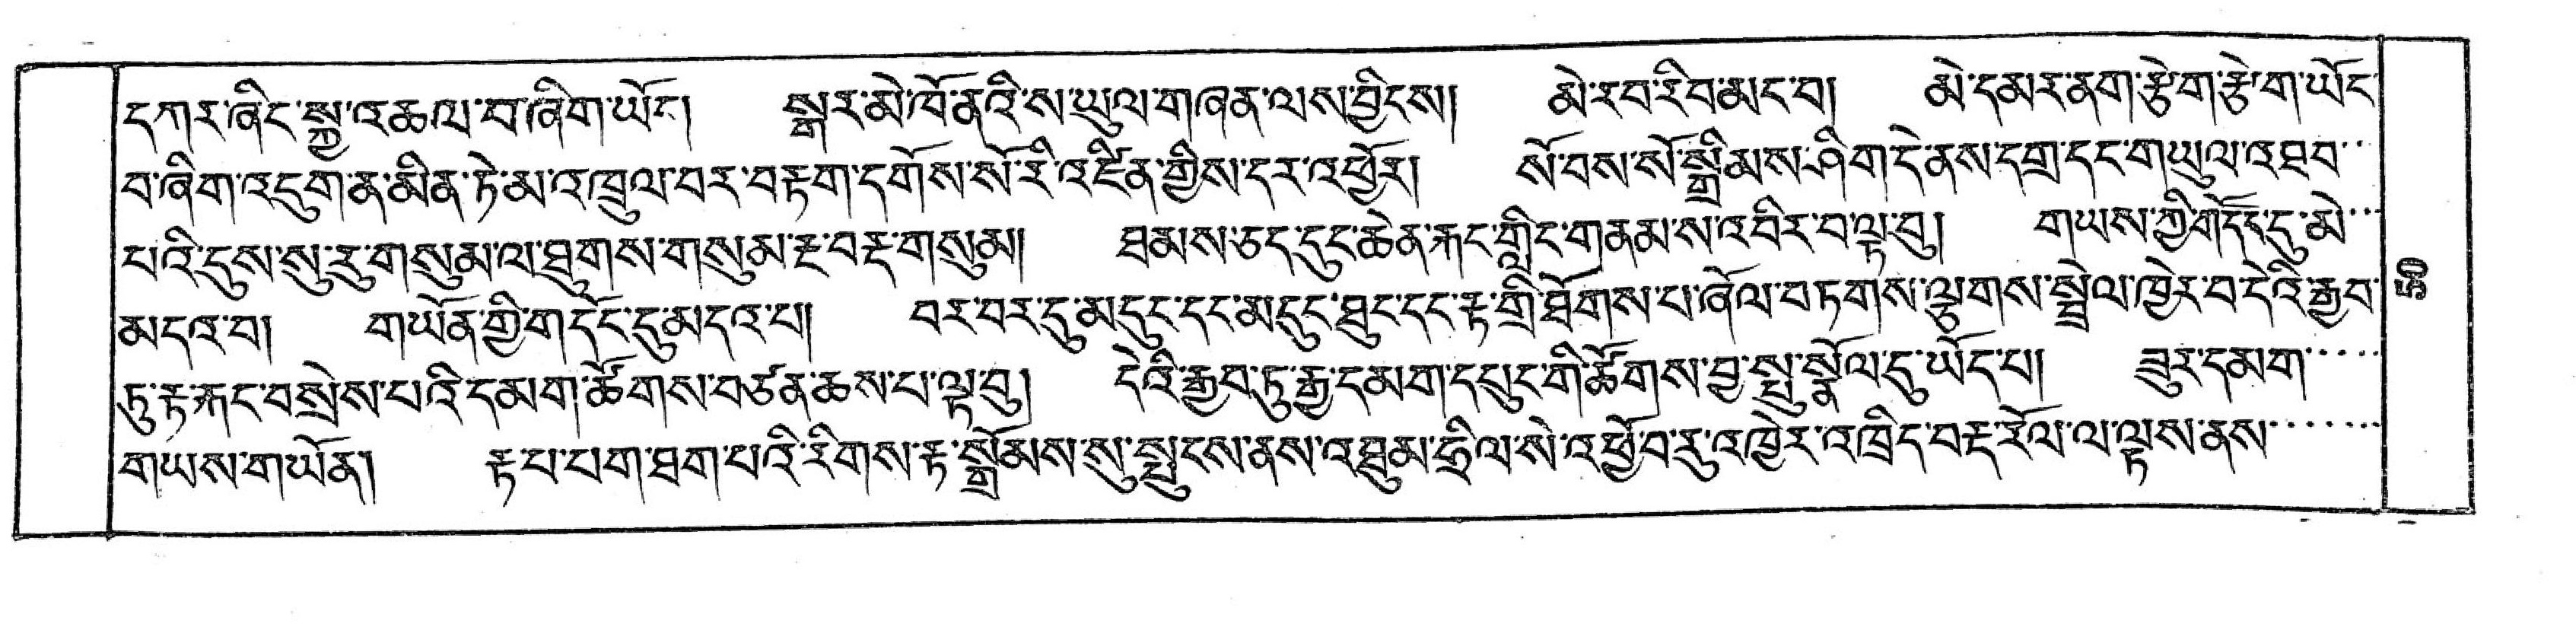 དཀར་ཞིང་སྐྱ་འཆལ་བ་ཞིག་ཡོང་། སྒར་མེ་ཁོ་ནའི་ས་ཡུལ་གཞན་ལས་བྱིངས། མེ་རབ་རིབ་མང་བ། མེ་དམར་ནག་རྩེག་རྩེག་ཡོང་
བ་ཞིག་འདུག་ན་མིན་ཏེ་མ་འཁྲུལ་བར་བརྟག་དགོས་སོ་རི་འཛིན་གྱིས་དར་འཕྱོར། སོ་བས་སོ་སྒྲིམས་ཤིག་དེ་ནས་དགྲ་དང་གཡུལ་འཐབ་
པའི་དུས་སུ་རུ་གསུམ་ལ་ཐུགས་གསུམ་རྔ་བརྡ་གསུམ། ཐམས་ཅད་དུང་ཆེན་རྐང་གླིང་གནམ་ས་འབིར་བ་ལྟ་བུ། གཡས་ཀྱི་གདོང་དུ་མེ་
མདའ་བ། གཡོན་གྱི་གདོང་དུ་མདའ་པ། བར་བར་དུ་མདུང་དང་མདུང་ཐུང་དང་རྟ་གྲི་ཐོགས་པ་ཞོལ་བཏགས་ལྕགས་སྦྲེལ་ཁྱེར་བ་དེའི་རྒྱབ་
ཏུ་རྟ་རྐང་བསྲེས་པའི་དམག་ཚོགས་བཙན་ཆས་པ་ལྟ་བུ། དེའི་རྒྱབ་ཏུ་རྒྱ་དམག་དཔུང་གི་ཚོགས་བྱ་སྤུ་སྣོལ་དུ་ཡོད་པ། ཟུར་དམག་
གཡས་གཡོན། རྟ་པ་པག་ཐག་པའི་རིགས་རྟ་སྒྲོམས་སུ་སྤུངས་ནས་འཐུམ་ཧྲིལ་སེ་འཕྱོ་བ་རུ་འཁྱེར་འཁྲིད་བརྡ་རོལ་ལ་ལྟས་ནས་